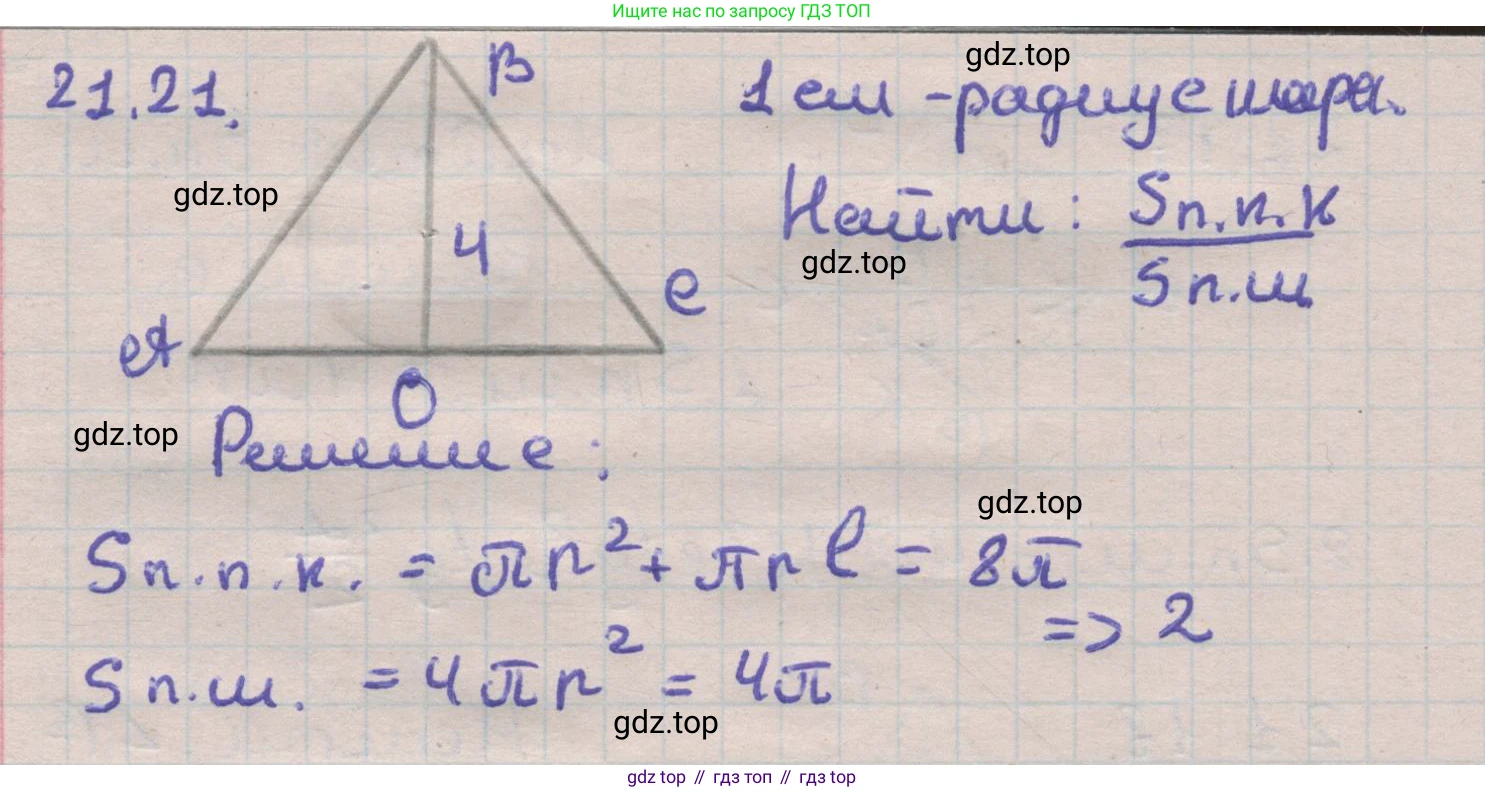 Ищите нас по запросу ГДЗ ТОП
21.21.
B
1 см - радиус шара.
gdz.top
gdz.top
Найти: Sп.п.к / Sп.ш
gdz.top
4
C
A
O
gdz.top
Решение:
gdz.top
Sп.п.к. = πr² + πrl = 8π
=> 2
Sп.ш. = 4πr² = 4π
gdz.top
gdz top // гдз топ // гдз top